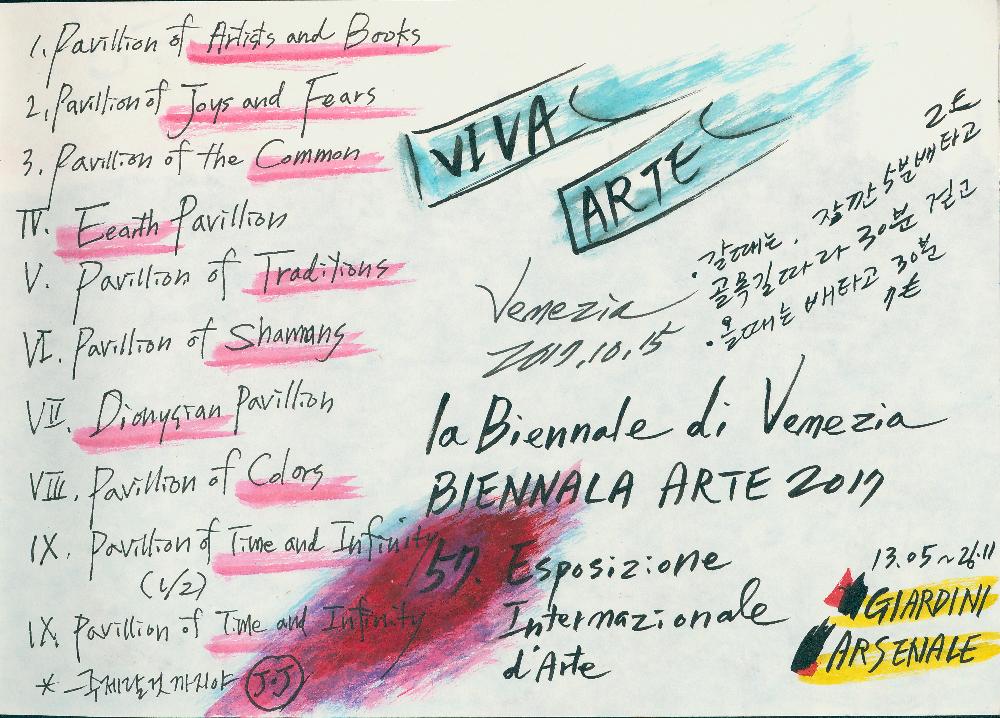 1. Pavillion of Artists and Books
2. Pavillion of Joys and Fears
3. Pavillion of the Common
IV. Eearth Pavillion
V. Pavillion of Traditions
VI. Pavillion of Shamans
VII. Dionysian Pavillion
VIII. Pavillion of Colors
IX. Pavillion of Time and Infinity
(1/2)
IX. Pavillion of Time and Infinity
J.J
VIVA
ARTE
Venezia
2017.10.15
2토
·갈때는. 5분배타고
골목길따라 30분 걷고
·올때는 배타고 30분
la Biennale di Venezia
BIENNALA ARTE 2017
57. Esposizione
Internazionale
d'Arte
13.05~26.11
GIARDINI
ARSENALE